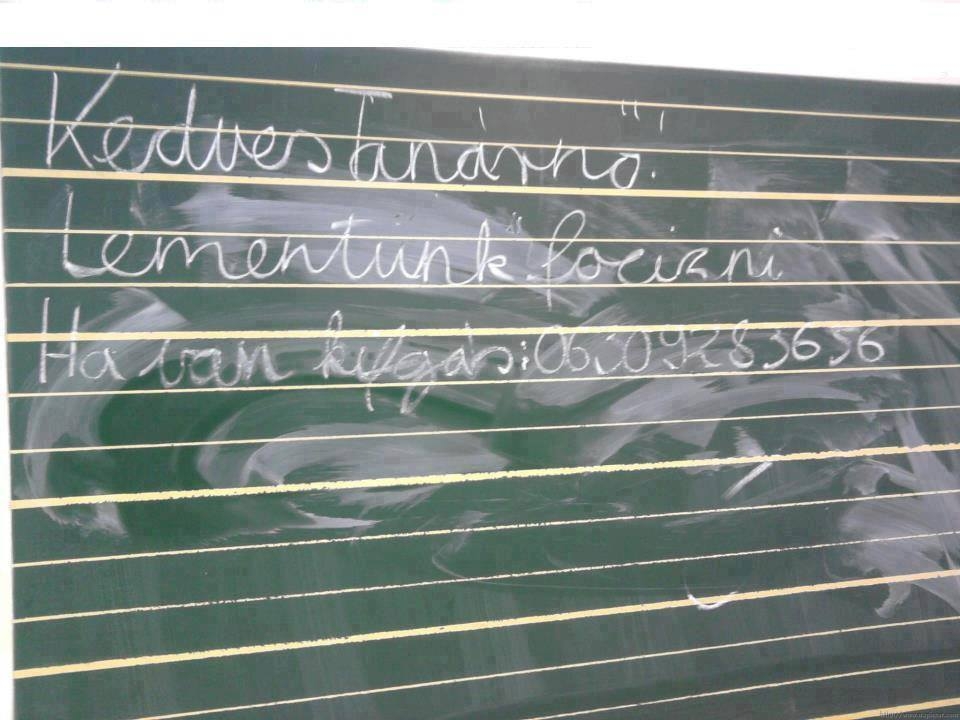 Kedves Tanárnő.
Lementünk focizni
Ha van kifgás: 06309283636